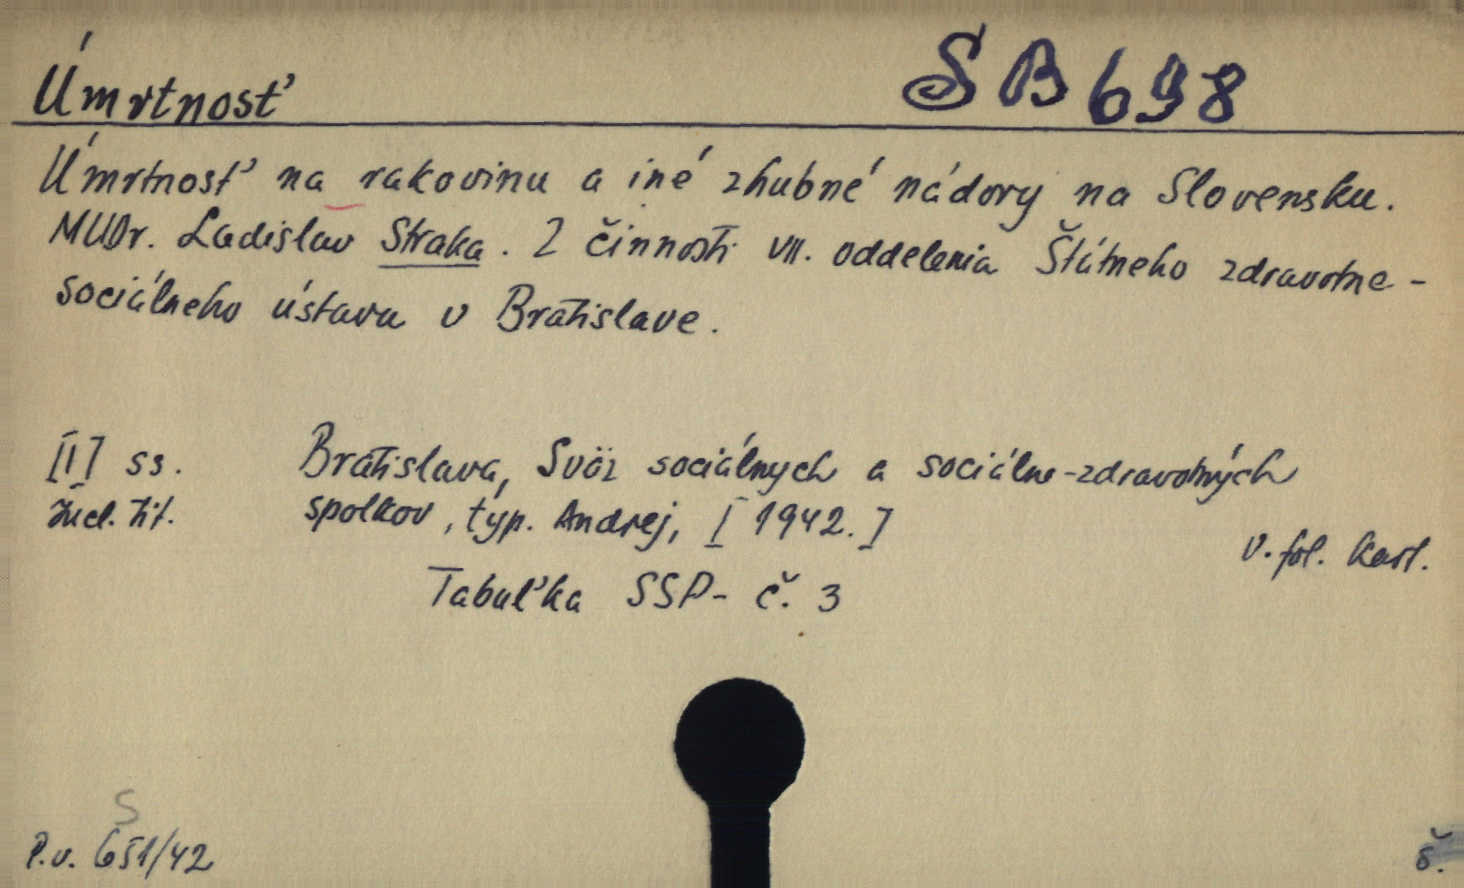 Úmrtnosť SB 698
Úmrtnosť na rakovinu a iné zhubné nádory na Slovensku.
MUDr. Ladislav Straka. Z činnosti VII. oddelenia Štátneho zdravotne-
sociálneho ústavu v Bratislave.
[1] ss. Bratislava, Sväz sociálnych a sociálne-zdravotných
Incl. tit. spolkov, typ. Andrej, [1942.]
V. fol. karl.
Tabuľka SSP- č. 3
S
P.v. 651/42
š.